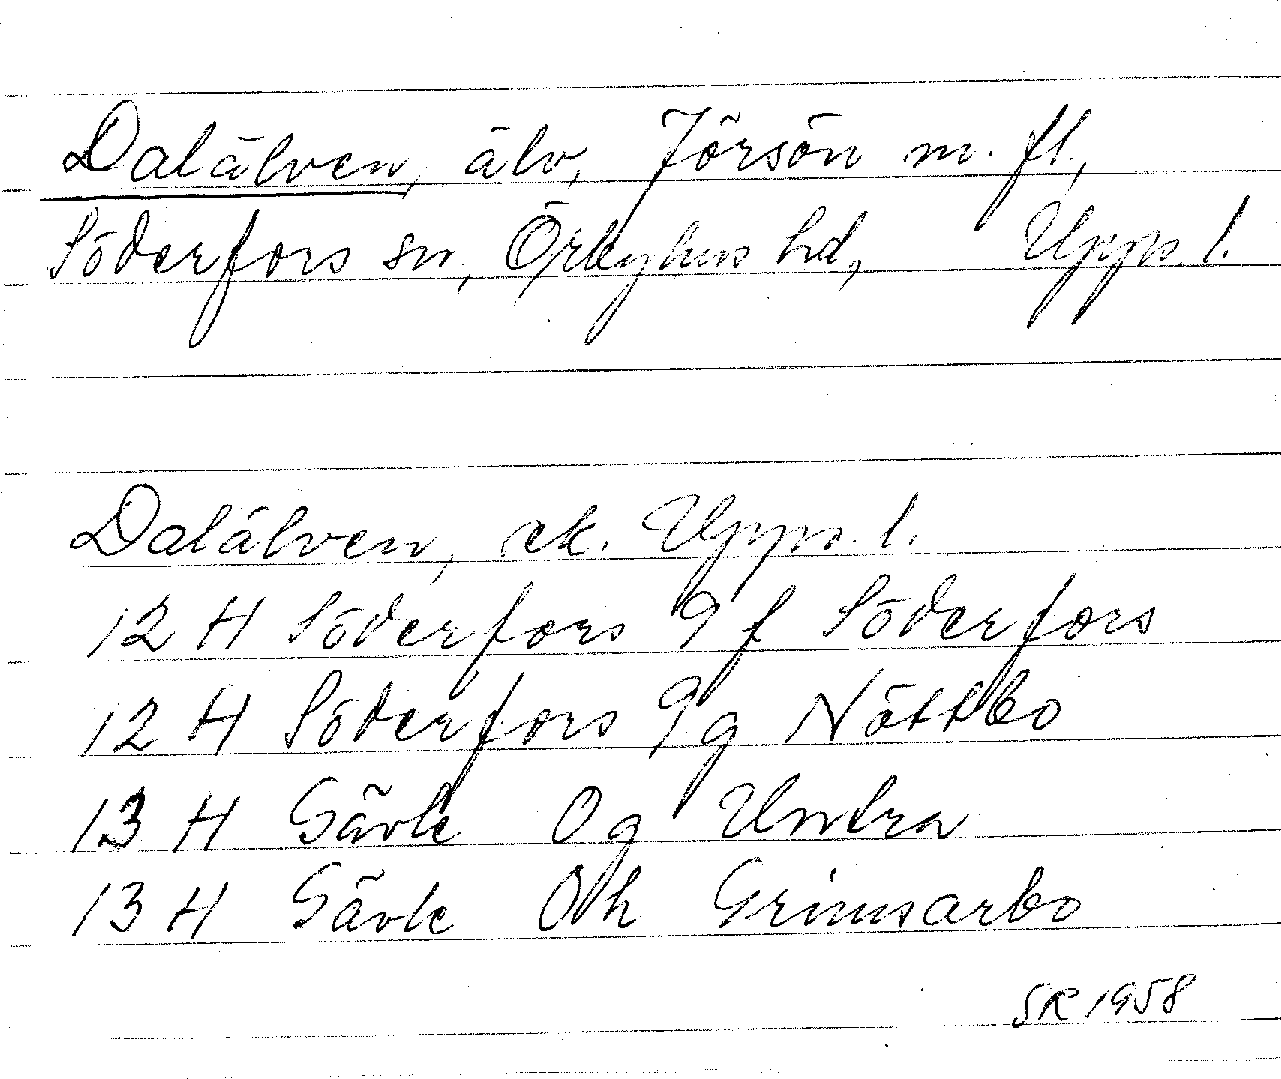 Dalälven, älv, Jörsön m. fl.,
Söderfors sn, Örbyhus hd, Upps l.
Dalälven, ek. Upps. l.
12 H Söderfors 9 f Söderfors
12 H Söderfors 9 g Nöttbo
13 H Gävle 0 g Untra
13 H Gävle 0 h Grimsarbo
SR 1958